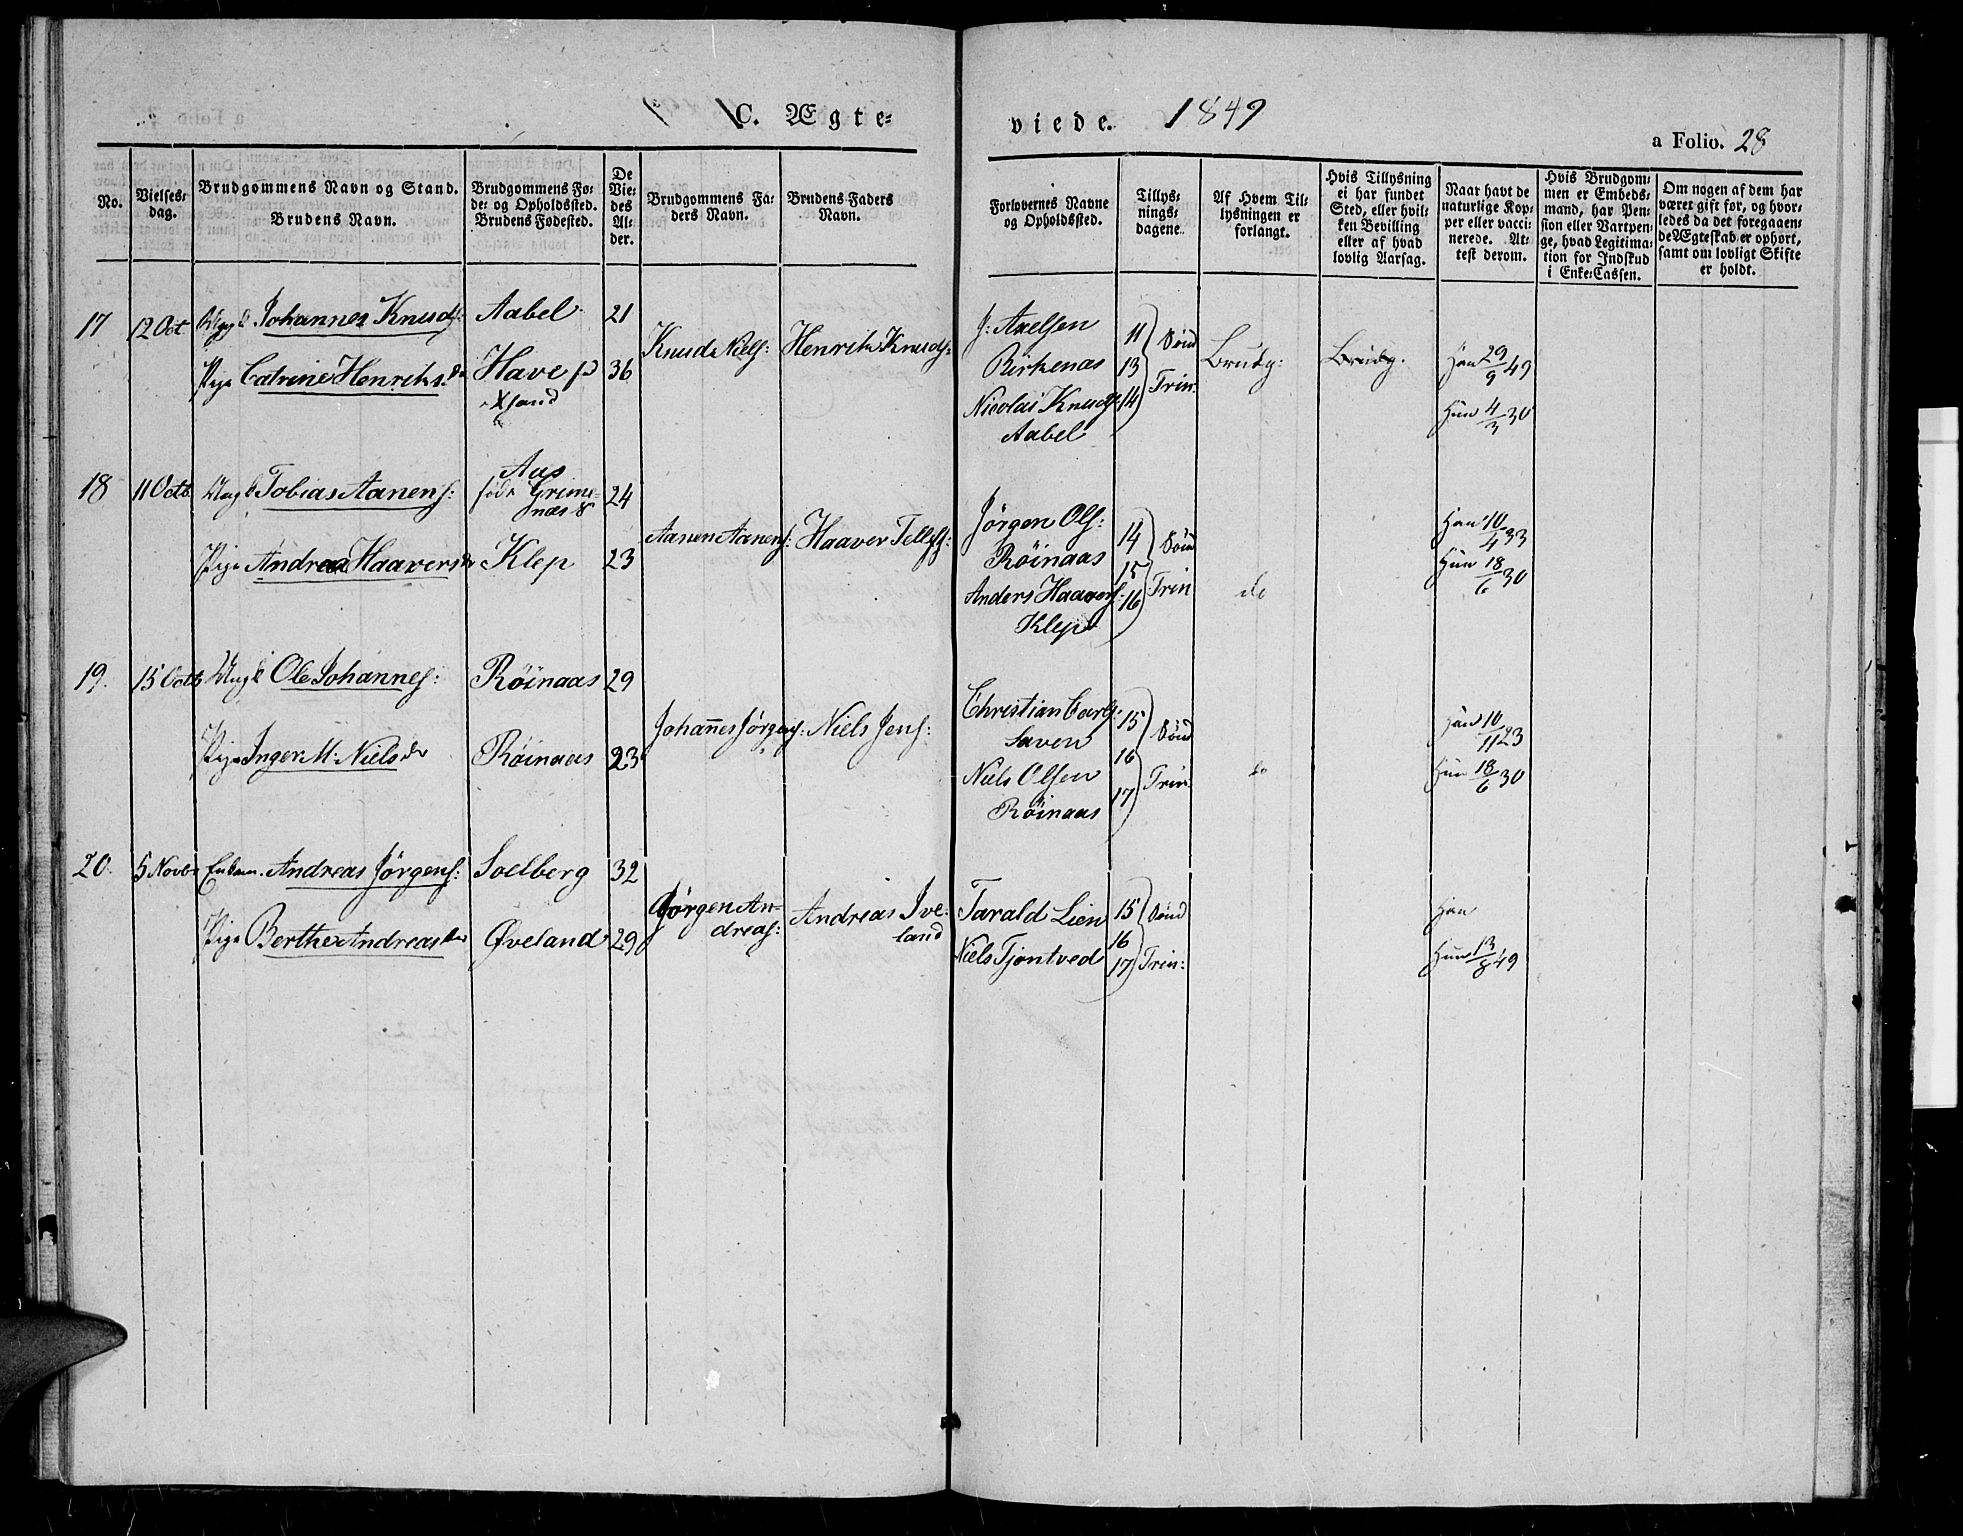 C. Ægte-
viede. 1849
a Folio. 28
No.
Vielses-
dag.
Brudgommens Navn og Stand.
Brudens Navn.
Brudgommens Fø-
de- og Opholdssted.
Brudens Fødested.
De
Vie-
des
Al-
der.
Brudgommens Fa-
ders Navn.
Brudens Faders
Navn.
Forlovernes Navne
og Opholdssted.
Tillys-
nings-
dagene
Af Hvem Til-
lysningen er
forlangt.
Hvis Tillysning
ei har fundet
Sted, eller hvil-
ken Bevilling
eller af hvad
lovlig Aarsag.
Naar havt de
naturlige Kop-
per eller vacci-
nerede. At-
test derom.
Hvis Brudgom-
men er Embeds-
mand, har Pen-
sion eller Vartpen-
ge, hvad Legitima-
tion for Indskud
i Enke-Cassen.
Om nogen af dem har
været gift før, og hvor-
ledes da det foregaaen-
de Ægteskab er ophørt,
samt om lovligt Skifte
er holdt.
17 12 Oct Johannes Knuds: Aabel 21
Pige Catrine Henriksdr Have 36
Knud Niels: Henrik Knuds:
J: Axelsen
Birkenas
Nicolai Knuds:
Aabel
11 13 14 Sønd Trin:
Brudg: Brudg.
Han 29/9 49
Hun 4/3 30
18 11 Octb Ungk Tobias Aanens:
Aas
fød Grime-
næs 24
Pige Andrea Haaversdr Klep 23
Aanen Aanens: Haaver Tellefs:
Jørgen Ols:
Røinaas
Anders Haavers:
Klep
14 15 16 Sønd Trin
do
Han 10/4 33
Hun 18/6 30
19. 15 Octb Ungk Ole Johannes: Røinaas 29
Pige Inger M: Nielsdr Røinaas 23
Johannes Jørgens: Niels Jens:
Christian Carls:
Saven
Niels Olsen
Røinaas
15 16 17 Sønd Trin
do
Han 10/11 23
Hun 18/6 30
20. 5 Novbr Enkem. Andreas Jørgens: Soelberg 32
Pige Berthe Andreasdr Øveland 29
Jørgen An-
dreas:
Andreas Ive-
land
Tarald Lien
Niels Tjøntved
15 16 17 Sønd Trin:
Han
Hun 13/8 49